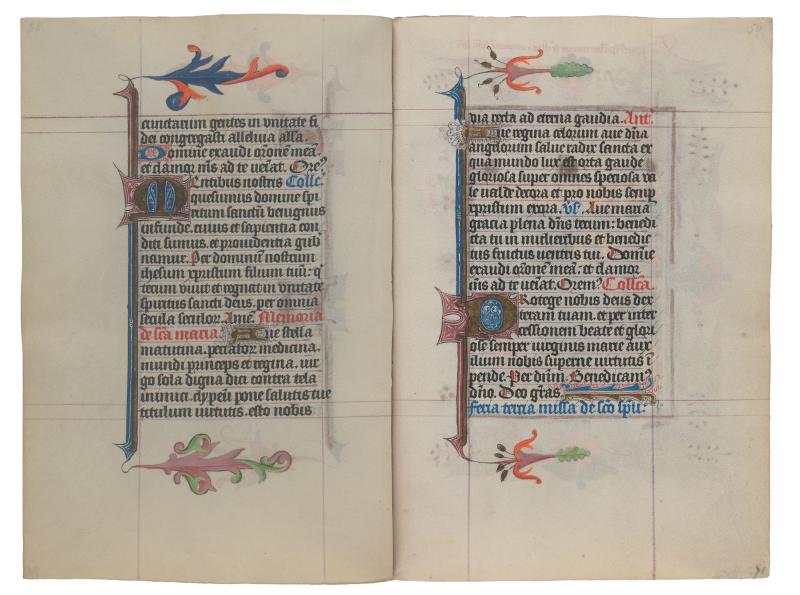 cunctarum gentes in unitate fi
dei congregasti alleluia alla.
Domine exaudi oronē meā.
et clamor mis ad te ueīat. Ore?
Mentibus nostris Collc.
quesumus domine spi
ritum sanctū benignus
infunde. cuius et sapientia con
diti sumus. et prouidentia gub
namur. Per dominū nostrum
ihesum xpristum filium tuū: q
tecum uiuit et regnat in unitate
spiritus sancti deus. per omnia
secula seculor. Amē. Memoria
de scā maria. Aue stella
matutina. peccator medicina.
mundi princeps et regina. uir
go sola digna dici contra tela
inimici. clypeū pone salutis tue
titulum uirtutis. esto nobis
via recta ad eterna gaudia. Ant.
Aue regina celorum aue dn̄a
anglorum salue radix sancta ex
qua mundo lux est orta gaude
gloriosa super omnes speciosa va
le ualde decora et pro nobis semp
xpristum exora. Vs. Aue maria
gracia plena dn̄s tecum: benedi
cta tu in mulieribus et benedic
tus fructus uentris tui. Domīe
exaudi oronē meā: et clamor
mis ad te ueīat. Orem? Collcā.
Protege nobis deus dex
teram tuam. et per inter
cessionem beate et glori
ose semper uirginis marie aux
ilium nobis superne uirtutis ī
pende. Per dn̄m. Benedicam?
dn̄o. Deo grās
Feria tercia missa de scō spū: